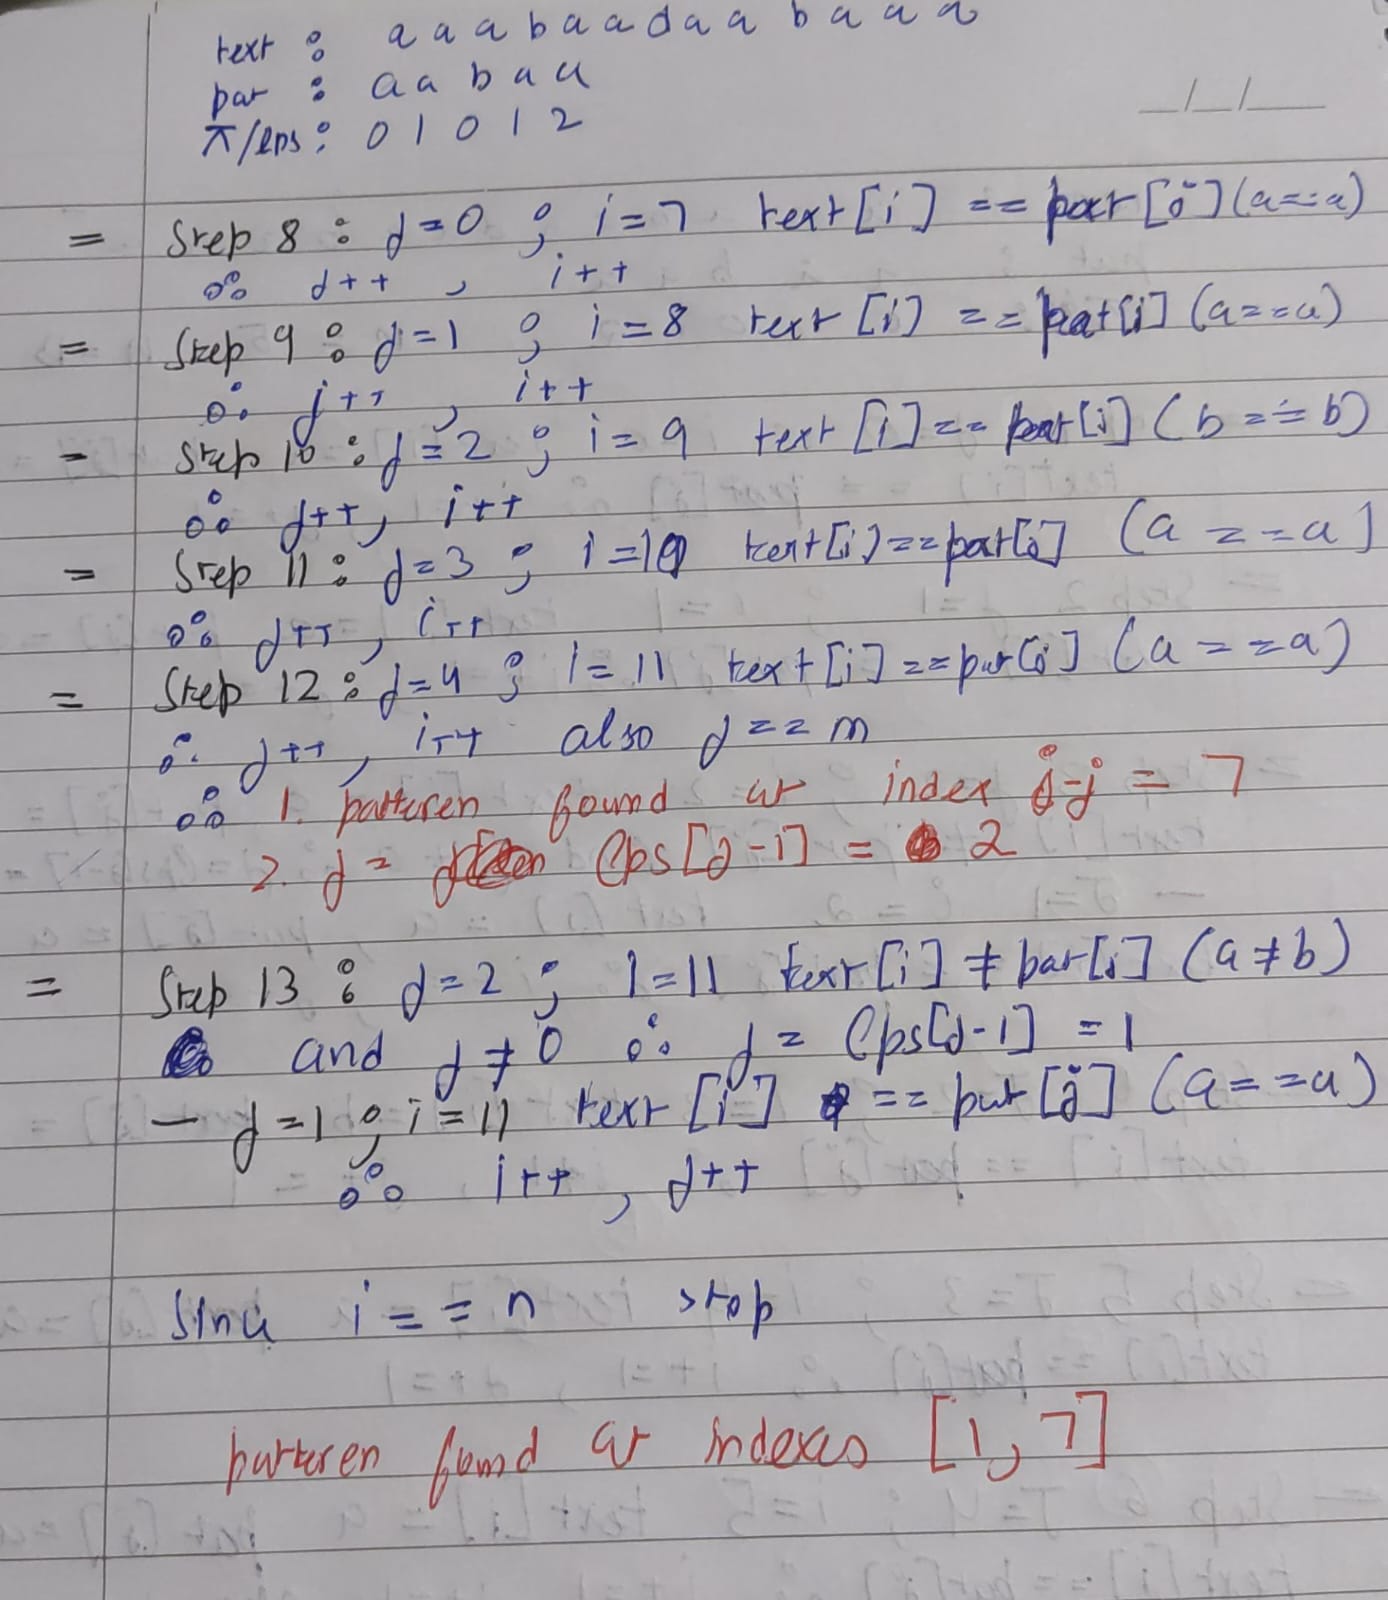 text : a a a b a a d a a b a a a
pat : a a b a a
π/lps : 0 1 0 1 2
_/_/_
= Step 8 : j=0 ; i=7 text[i] == pat[j] (a==a)
∴ j++ , i++
= Step 9 : j=1 ; i=8 text[i] == pat[j] (a==a)
∴ j++ , i++
= Step 10 : j=2 ; i=9 text[i]== pat[j] (b==b)
∴ j++, i++
= Step 11 : j=3 ; i=10 text[i]==pat[j] (a==a]
∴ j++, i++
= Step 12 : j=4 ; i=11 text[i]==pat[j] (a==a)
∴ j++, i++ also j==m
∴ 1. patteren found at index i-j = 7
2. j = lps[j-1] = 2
= Step 13 : j=2 ; i=11 text[i] ≠ pat[j] (a≠b)
and j≠0 ∴ j = lps[j-1] = 1
— j=1 ; i=11 text[i] == pat[j] (a==a)
∴ i++ , j++
Since i==n stop
patteren found at indexes [1, 7]